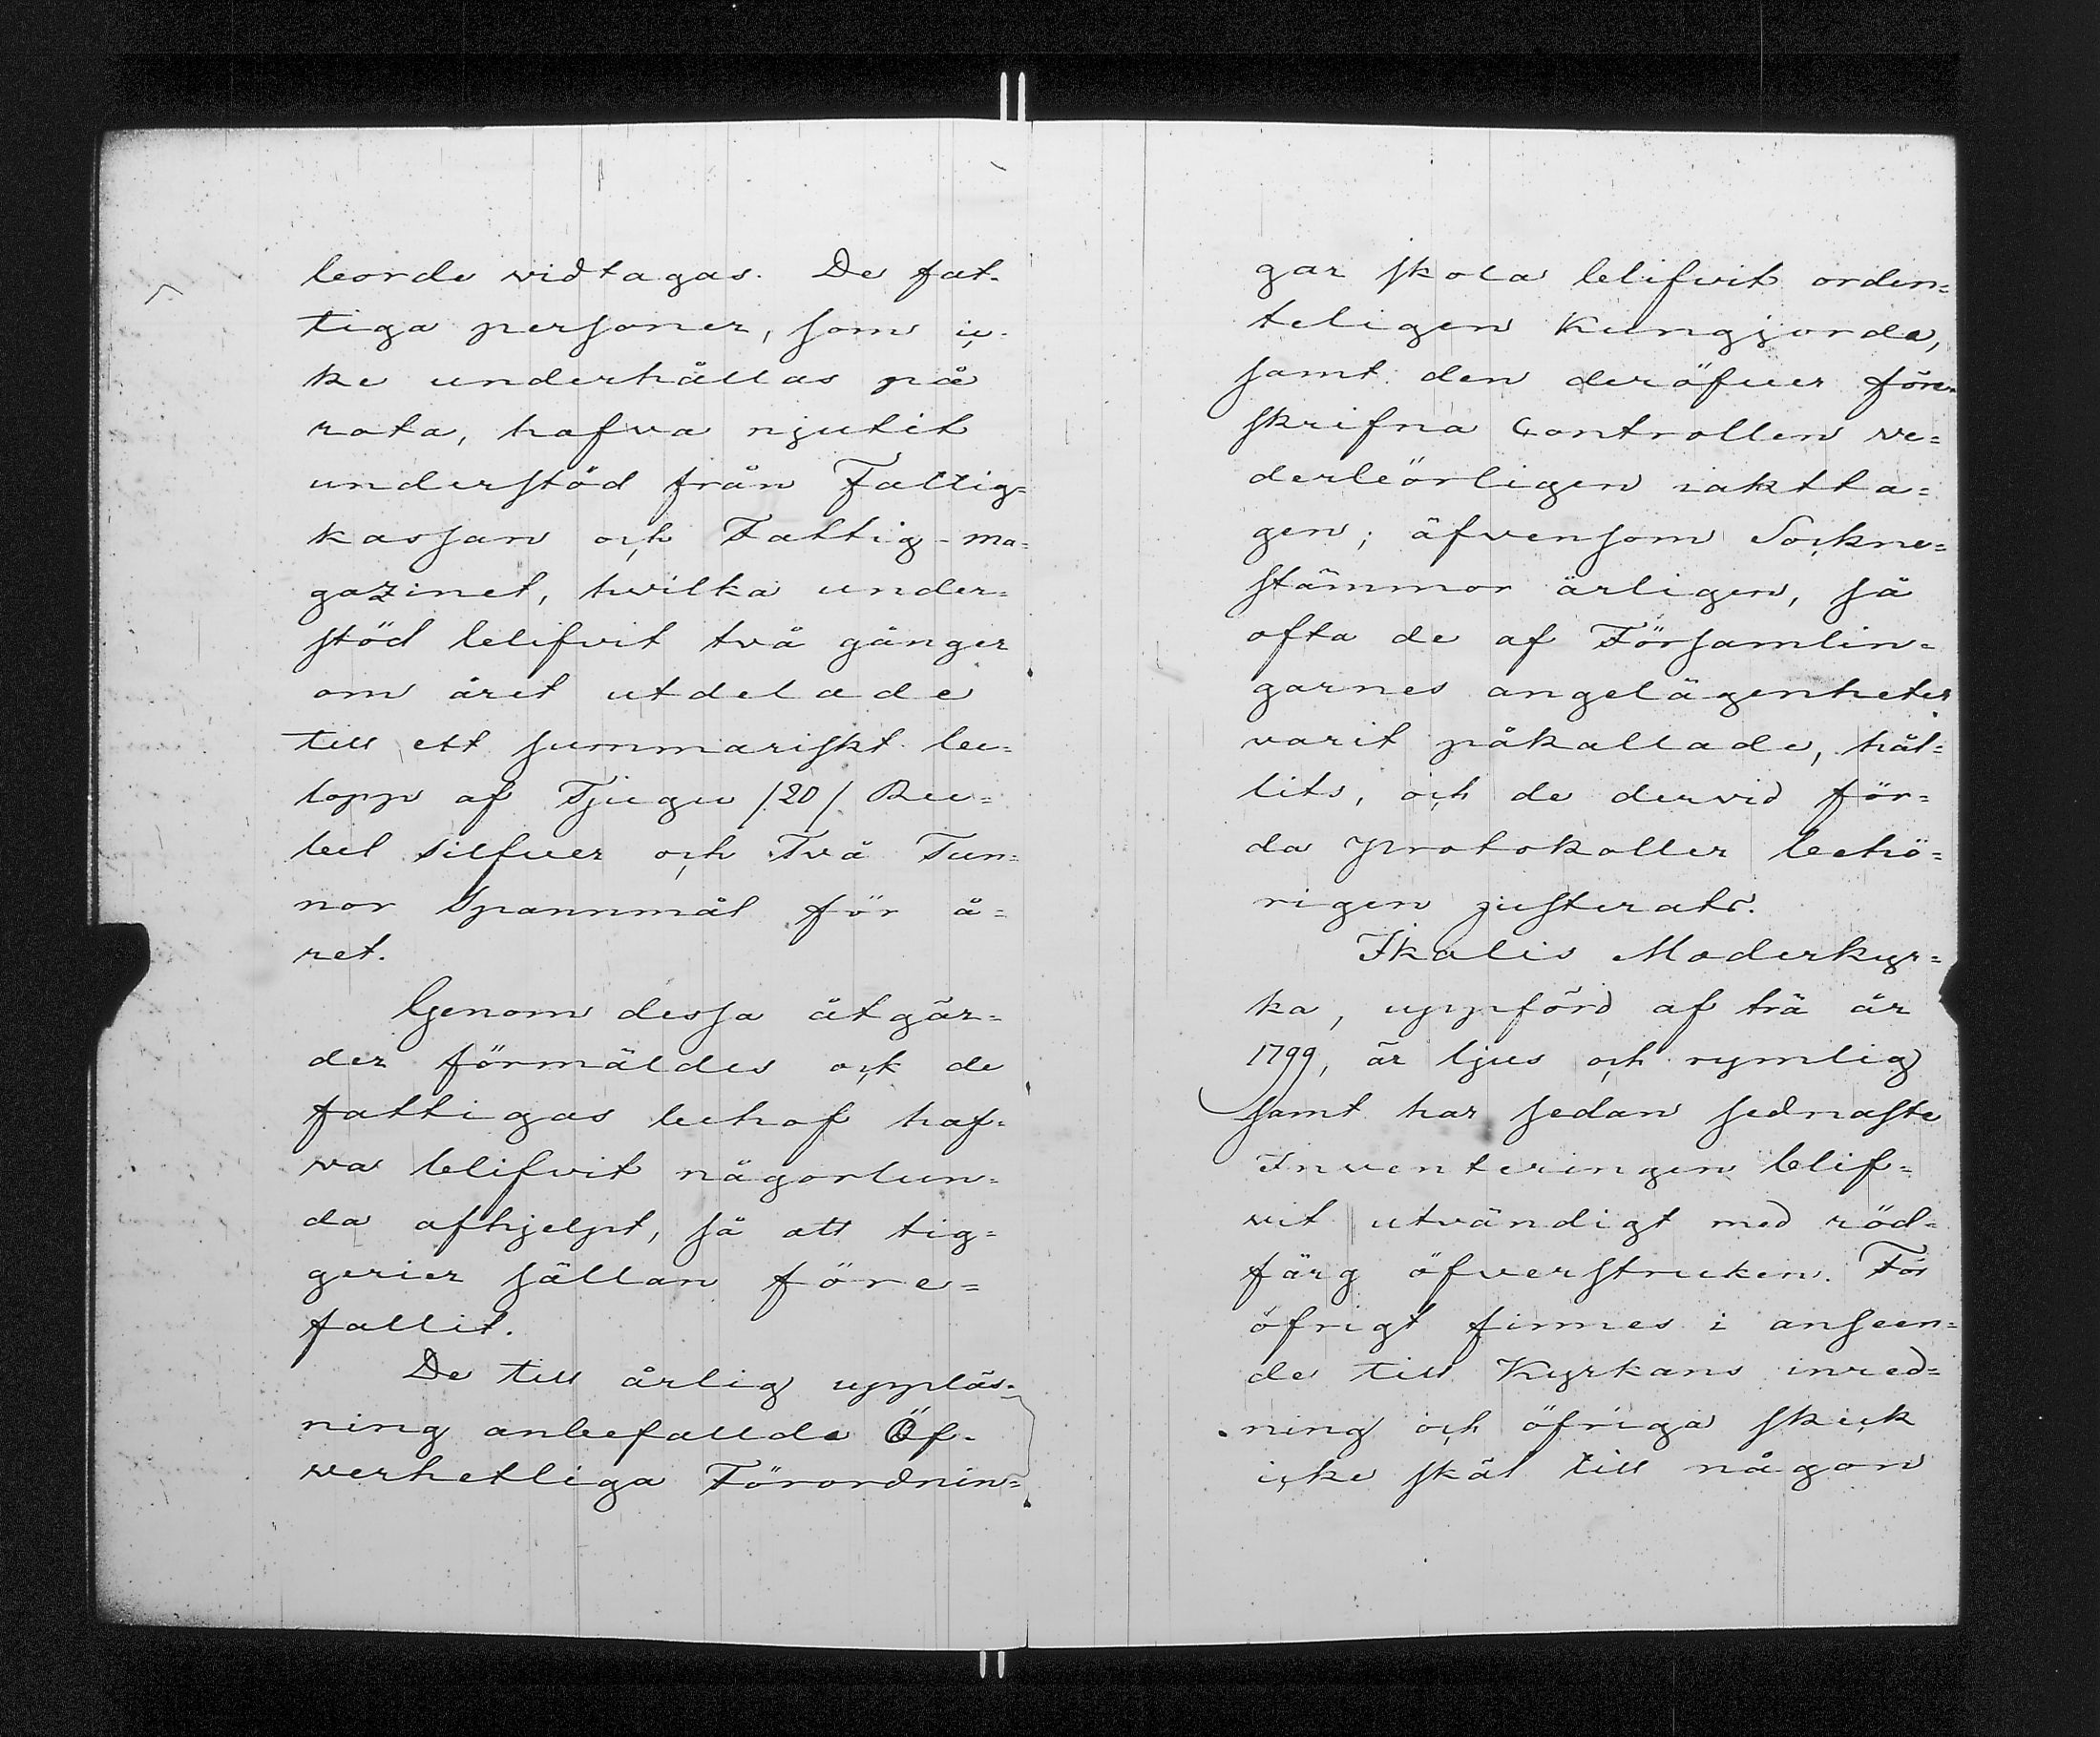 borde vidtagas. De fat-
tiga personer, som ic-
ke underhållas på
rota, hafva njutit
understöd från Fattig=
kassan och Fattig-ma=
gazinet, hvilka under=
stöd blifvit två gånger
om året utdelade
till ett summariskt be=
lopp af Tjugu /20/ Ru=
bel Silfver och Två Tun=
nor Spannmål för å=
ret.
Genom dessa åtgär=
der förmäldes ock de
fattigas behof haf=
va blifvit någorlun=
da afhjelpt, så att tig=
gerier sällan före=
fallit.
De till årlig uppläs=
ning anbefallda Öf-
verhetliga Förordnin=
gar skola blifvit orden=
teligen Kungjorda,
samt den deröfver före-
skrifna Controllen ve=
derbörligen iaktta=
gen; äfvensom Sockne=
stämmor årligen, så
ofta de af Församlin=
garnes angelägenheter
varit påkallade, hål=
lits, och de dervid för=
da Protokoller behö=
rigen justerats.
Ikalis Moderkyr=
ka, uppförd af trä år
1799, är ljus och rymlig
samt har sedan sednaste
Inventeringen blif=
vit utvändigt med röd=
färg öfverstruken. För
öfrigt finnes i anseen=
de till Kyrkans inred=
ning och öfriga skick
icke skäl till någon